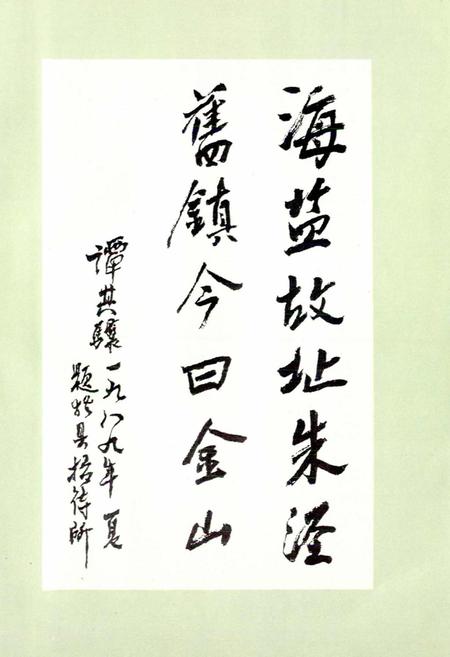 海盐故址朱泾
舊鎮今日金山
譚其驤一九八九年夏
题於县招待所